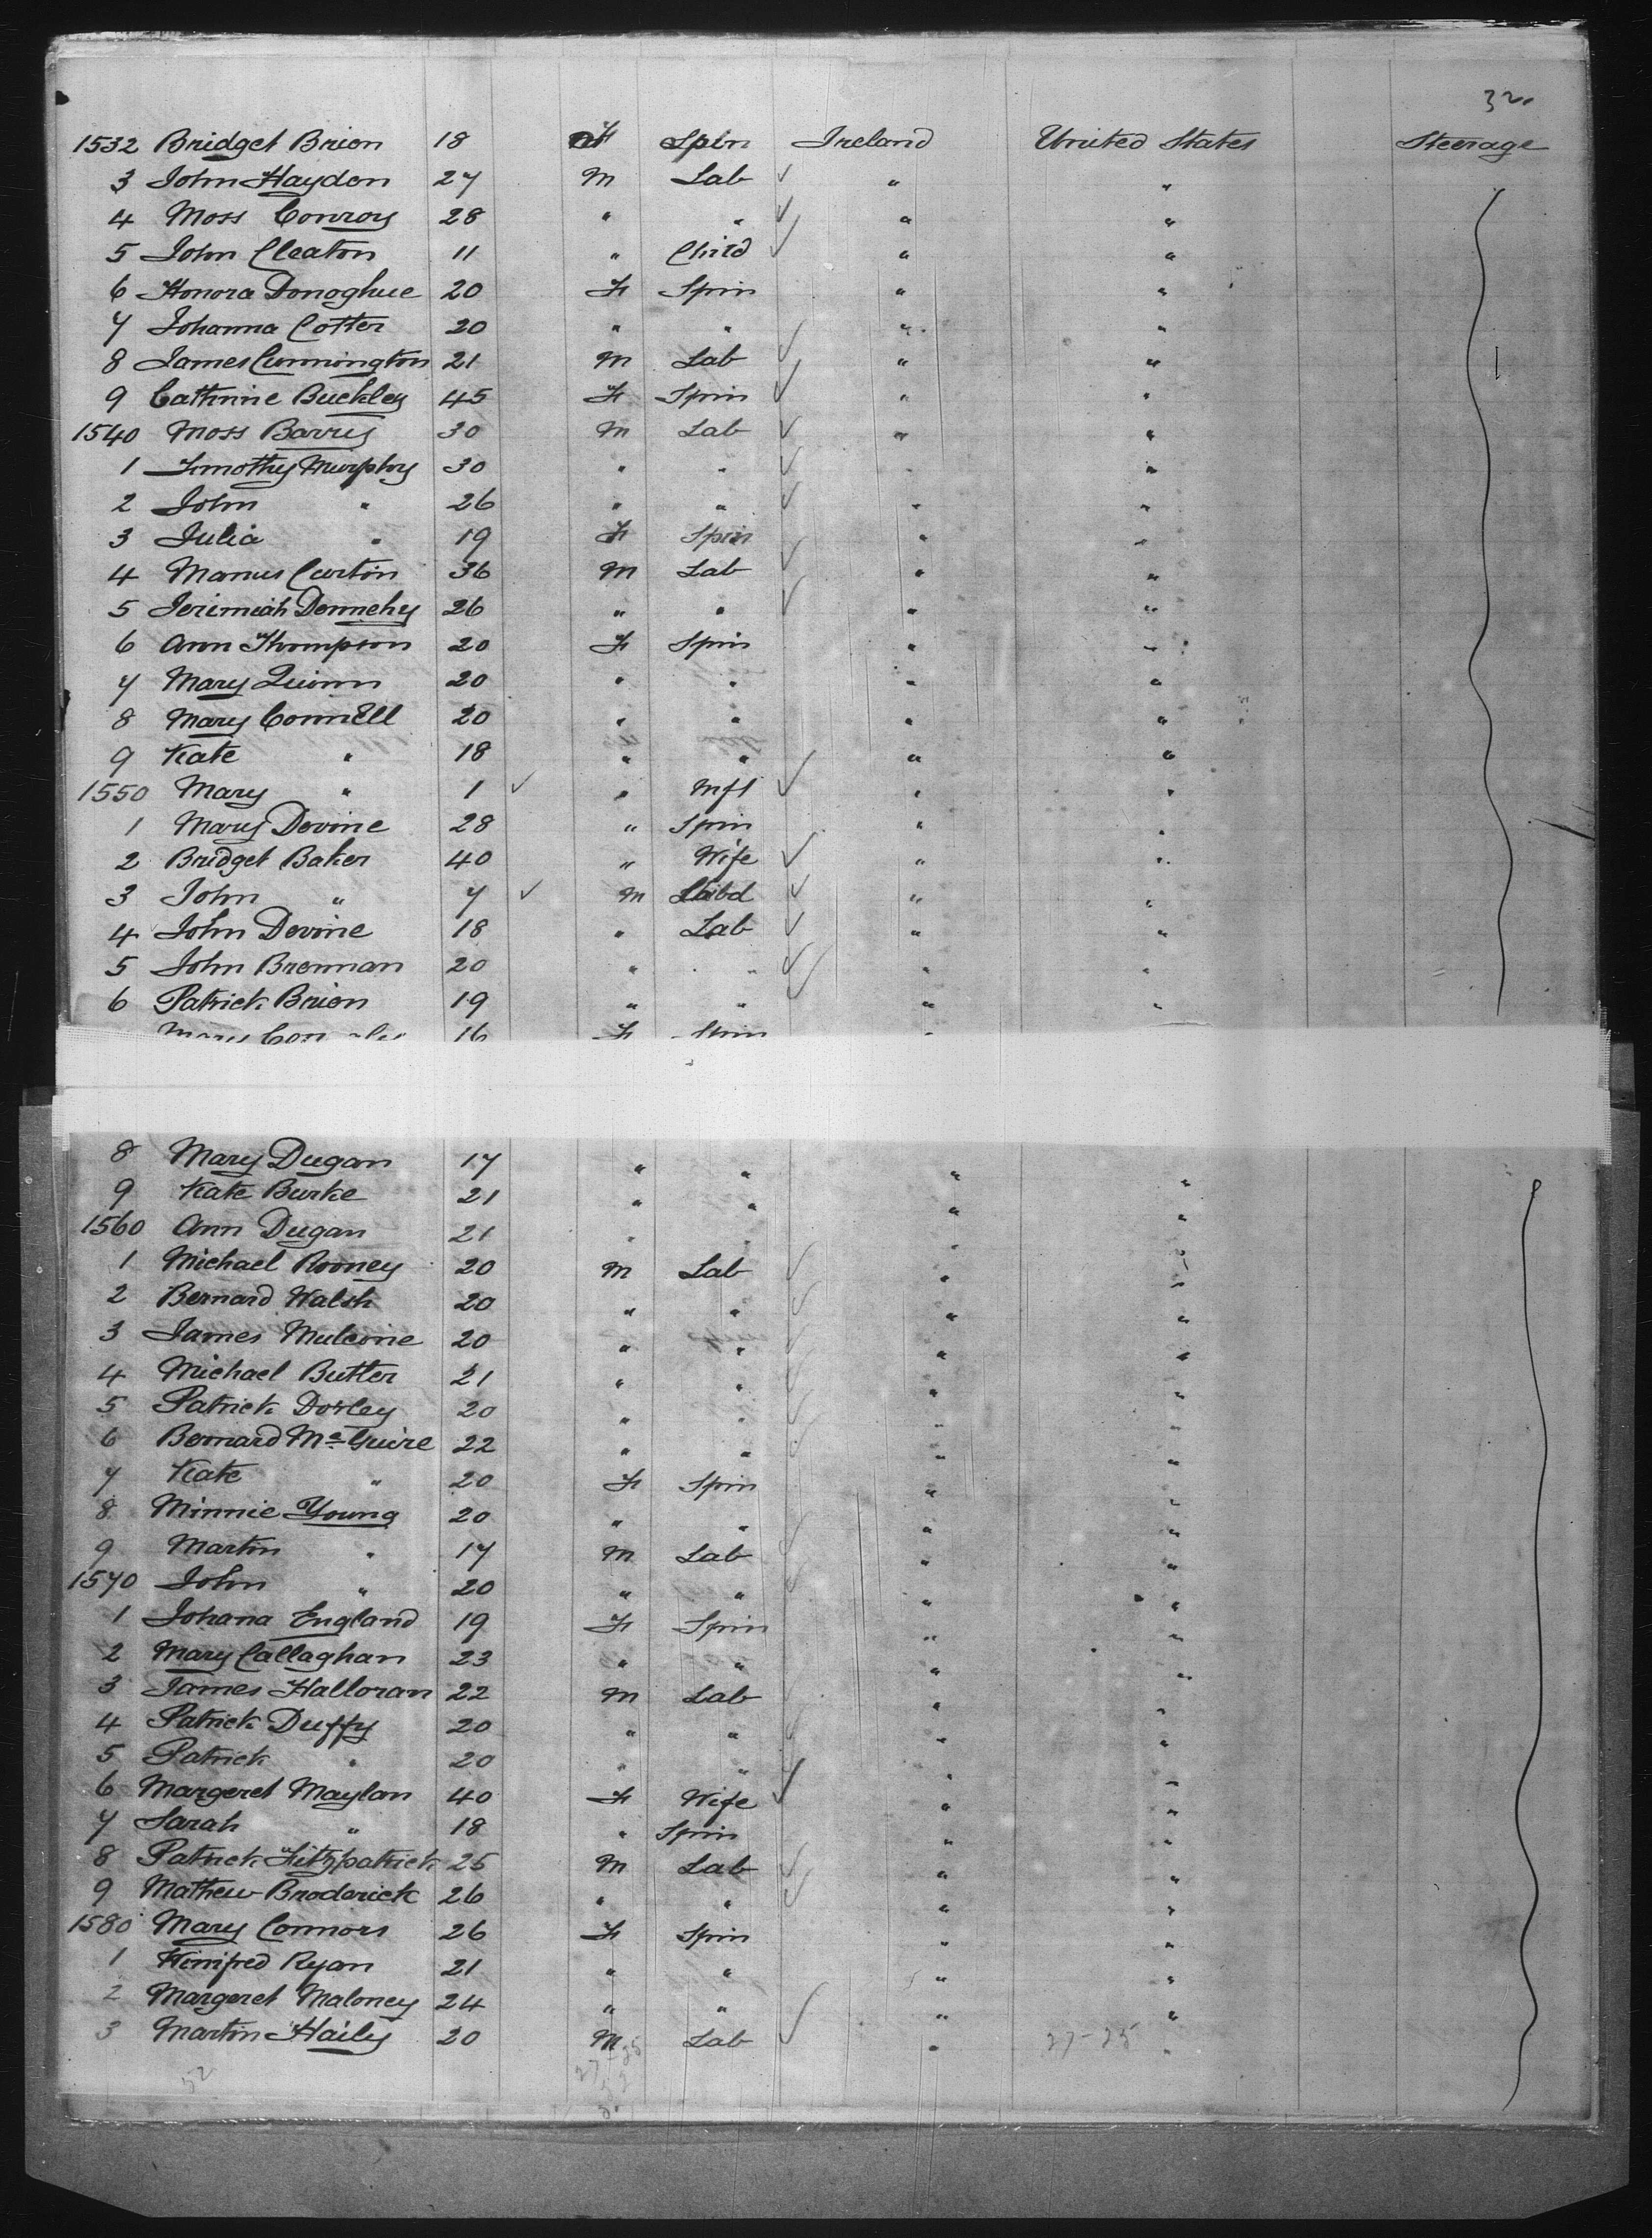 32
1532 Bridget Brien 18 F Spin Ireland United States Steerage
3 John Haydon 27 M Lab " "
4 Moss Conroy 28 " " " "
5 John Cleaton 11 " Child " "
6 Honora Donoghue 20 F Spin " "
7 Johanna Cotter 20 " " " "
8 James Cunnington 21 M Lab " "
9 Cathrine Buckley 45 F Spin " "
1540 Moss Barry 30 M Lab " "
1 Timothy Murphy 30 " " " "
2 John " 26 " " " "
3 Julia " 19 F Spin " "
4 Manus Curtin 36 M Lab " "
5 Jerimiah Dennehy 26 " " " "
6 Ann Thompson 20 F Spin " "
7 Mary Quinn 20 " " " "
8 Mary Connell 20 " " " "
9 Kate " 18 " " " "
1550 Mary " 1 " Inft " "
1 Mary Devine 28 " Spin " "
2 Bridget Baker 40 " Wife " "
3 John " 7 M Child " "
4 John Devine 18 " Lab " "
5 John Brennan 20 " " " "
6 Patrick Brien 19 " " " "
Mary 16 F Spin "
8 Mary Dugan 17 " " " "
9 Kate Burke 21 " " " "
1560 Ann Dugan 21 " " " "
1 Michael Rooney 20 M Lab " "
2 Bernard Walsh 20 " " " "
3 James Mulvine 20 " " " "
4 Michael Butler 21 " " " "
5 Patrick Dorley 20 " " " "
6 Bernard McGuire 22 " " " "
7 Kate " 20 F Spin " "
8 Minnie Young 20 " " " "
9 Martin " 17 M Lab " "
1570 John " 20 " " " "
1 Johana England 19 F Spin " "
2 Mary Callaghan 23 " " " "
3 James Halloran 22 M Lab " "
4 Patrick Duffy 20 " " " "
5 Patrick " 20 " " " "
6 Margeret Maylan 40 F Wife " "
7 Sarah " 18 " Spin " "
8 Patrick Fitzpatrick 25 M Lab " "
9 Mathew Broderick 26 " " " "
1580 Mary Connors 26 F Spin " "
1 Winifred Ryan 21 " " " "
2 Margeret Maloney 24 " " " "
3 Martin Haily 20 M Lab " "
52 27-25 27-25